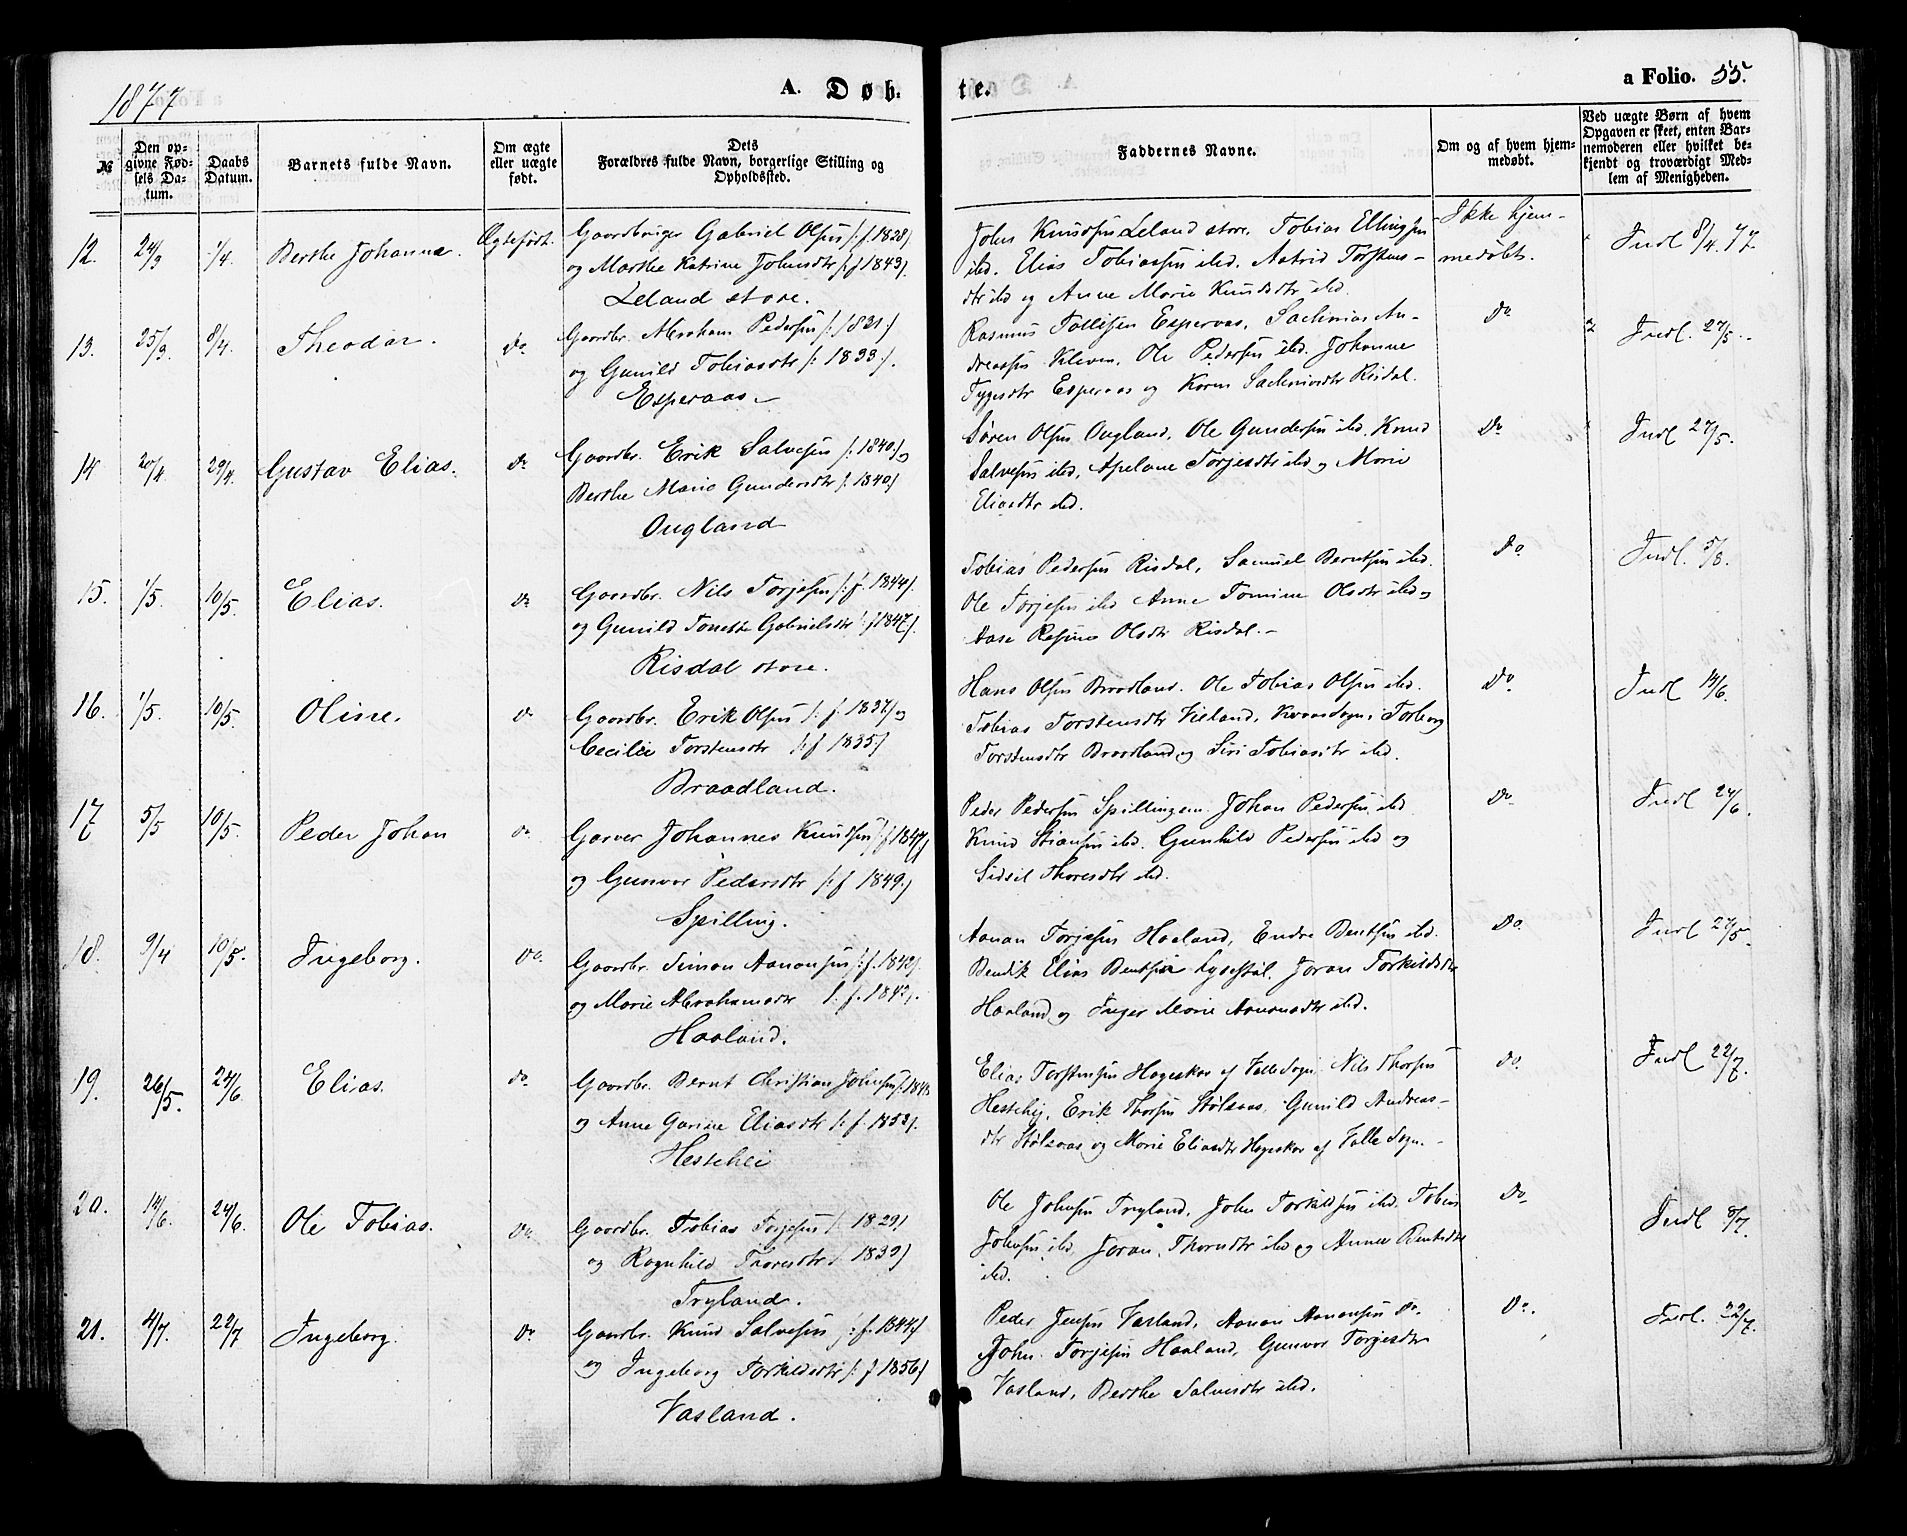 1877
A. Døb-
te.
a Folio. 55.
№
Den op-
givne Fød-
sels Da-
tum.
Daabs
Datum.
Barnets fulde Navn.
Om ægte
eller uægte
født.
Dets
Forældres fulde Navn, borgerlige Stilling og
Opholdssted.
Faddernes Navne.
Om og af hvem hjem-
medøbt.
Ved uægte Børn af hvem
Opgaven er skeet, enten Bar-
nemoderen eller hvilket be-
kjendt og troværdigt Med-
lem af Menigheden.
12. 24/3 1/4. Berthe Johanne. Ægtefødt.
Gaardbruger Gabriel Olsen /: f. 1828/.
og Marthe Katrine Johnsdtr /: f 1843/.
Leland store.
John Knudsen Leland store. Tobias Ellingsen
ibd. Elias Tobiassen ibd. Astrid Torstens-
dtr ibd og Anne Marie Knudsdtr ibd.
Ikke hjem-
medøbt.
Indl 8/4. 77.
13. 25/3. 8/4. Theodor. Do
Gaardbr. Abraham Pedersen /: 1831/
og Gunild Tobiasdtr /: 1833/.
Esperaas
Rasmus Tollisen Esperaas, Sachrias An-
dreassen Kleven, Ole Pedersen ibd. Johanne
Tygesdtr Esperaas og Karen Sachriasdtr Risdal.
Do
Indl. 27/5.
14 20/4 29/4. Gustav Elias. Do
Gaardbr. Erik Salvesen /: 1840/ og
Berthe Marie Gundersdtr /: 1840/
Ougland
Søren Olsen Ougland, Ole Gundersen ibd. Knud
Salvesen ibd, Torjesdtr ibd og Marie
Eliasdtr ibd.
Do
Indl 27/5.
15. 1/5. 10/5. Elias. Do
Gaardbr. Nils Torjesen /: f. 1844/.
og Gunild Tonette Gabrielsdtr /: f 1847/.
Risdal store.
Tobias Pedersen Risdal, Samuel Berntsen ibd.
Ole Torjesen ibd Anne Tomine Olsdtr ibd og
Aase Rasine Olsdtr Risdal.-
Do
Indl. 5/8.
16. 1/5. 10/5. Oline. Do
Gaardbr. Erik Olsen /: f. 1837/ og
Cecilie Torstensdtr /: f 1835/
Braadland.
Hans Olsen Braadland. Ole Tobias Olsen ibd.
Tobias Torstensdtr Vieland, Kvaas sogn, Torborg
Torstensdtr Braadland og Siri Tobiasdtr ibd.
Do.
Indl 14/6.
17 5/5 10/5. Peder Johan Do
Garver Johannes Knudsen /: f 1847/
og Gunvor Pedersdtr /: f 1849/
Spilling.
Peder Pedersen Spillingem. Johan Pedersen ibd
Knud Stiansen ibd. Gunhild Pedersen ibd og
Sidsil Thoresdtr ibd.
Do
Indl 24/6.
18. 9/4 10/5. Ingeborg. Do.
Gaardbr. Simon Aanonsen /: f. 1842/
og Marie Abrahamsdtr /: f. 1843/.
Haaland.
Aanan Torjesen Haaland, Endre Bentsen ibd.
Bendik Elias Bentsen Lysestøl, Joran Torkildsdtr
Haaland og Inger Marie Aanonsdtr ibd.
Do.
Indl 27/5.
19. 26/5. 24/6 Elias. Do
Gaardbr. Bernt Christian Johnsen /: 1843
og Anne Gurine Eliasdtr /: f. 1853/.
Hestehei
Elias Torstensen Hageskar af Valle Sogn. Nils Thorsen
Hestehej, Erik Thorsen Stølsaas, Gunild Andreas-
dtr Stølsaas og Marie Eliasdtr Hageskar af Valle Sogn.-
Do.
Indl 22/7.
20. 14/6. 24/6. Ole Tobias. Do.
Gaardbr. Tobias Torjesen /: 1829/
og Ragnhild Thoresdtr /: 1839/
Tryland.
Ole Johnsen Tryland, John Torkildsen ibd. Tobias
Johnsen ibd, Joran Thorsdtr ibd og Anne Bentsdtr
ibd.
Do.
Indl 8/7.
21. 4/7. 22/7 Ingeborg. Do
Gaardbr. Knud Salvesen /: f. 1844/
og Ingeborg Torkildsdtr /: f 1856/
Vasland.
Peder Jensen Vasland, Aanon Aanonsen Do.
John Torjesen Haaland, Gunvor Torjesdtr
Vasland, Berthe Salvesdtr ibd.
Do.
Indl. 22/7.